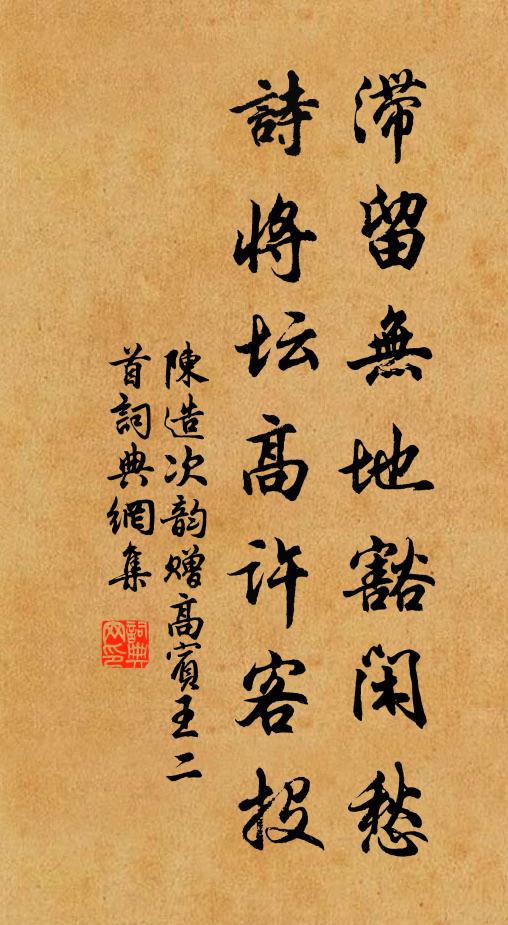 滯留無地豁閑愁
詩將坛高許客投
陳造次韵贈高賓王二
首詞典網集
詞典
网印